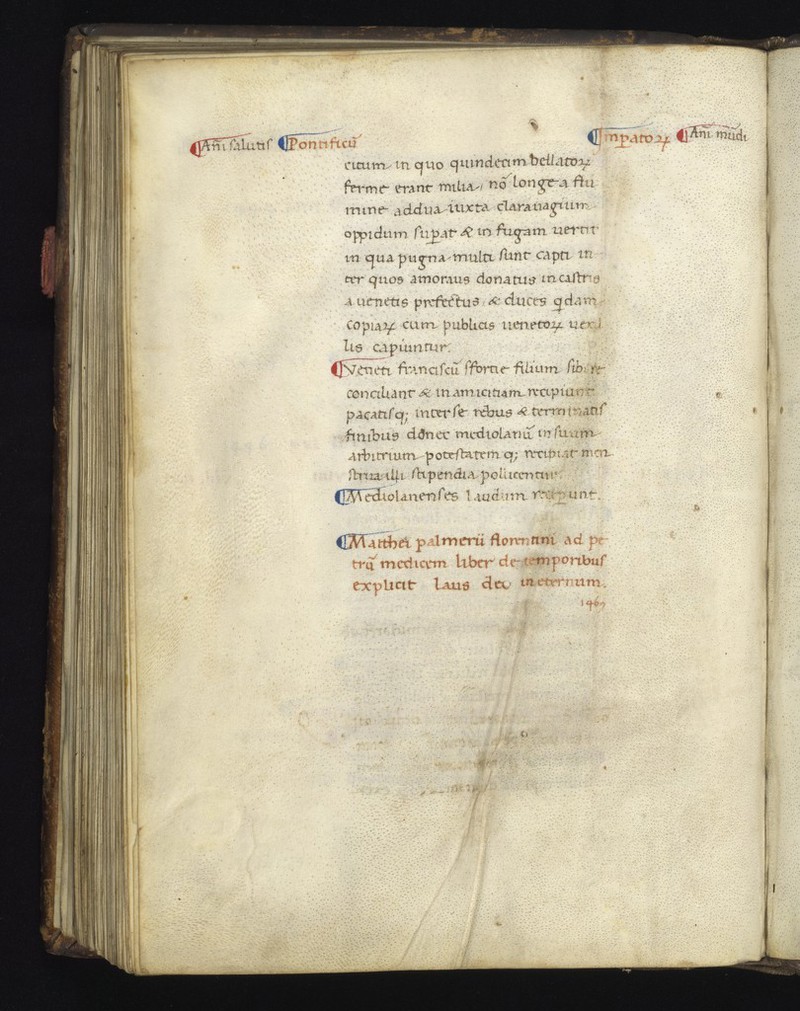 ¶Añi salutis ¶Pontificũ ¶Inꝑatoꝝ ¶Añi mũdi
citum in quo quindecim bellatoꝝ
ferme erant milia, nõ longe a flu
mine addua iuxta clarauagium
oppidum suꝑat & in fugam uertit
in qua pugna multi sunt capti in
ter quos amoraus donatus in castris
a uenetis prefectus & duces qdam
copiaꝝ cum publicis uenetoꝝ uexil
lis capiuntur.
¶Veneti franciscũ sfortie filium sibi re
conciliant & in amicitiam recipiunt
pacatisq; inter se rebus & terminatis
finibus donec mediolanũ in suum
arbitrium potestatem q; recipiat men
strua illi stipendia pollicentur.
¶Mediolanenses laudum recipiunt.
¶Matthei palmerii florentini ad pe
trũ medicem liber de temporibus
explicit laus deo in eternum.